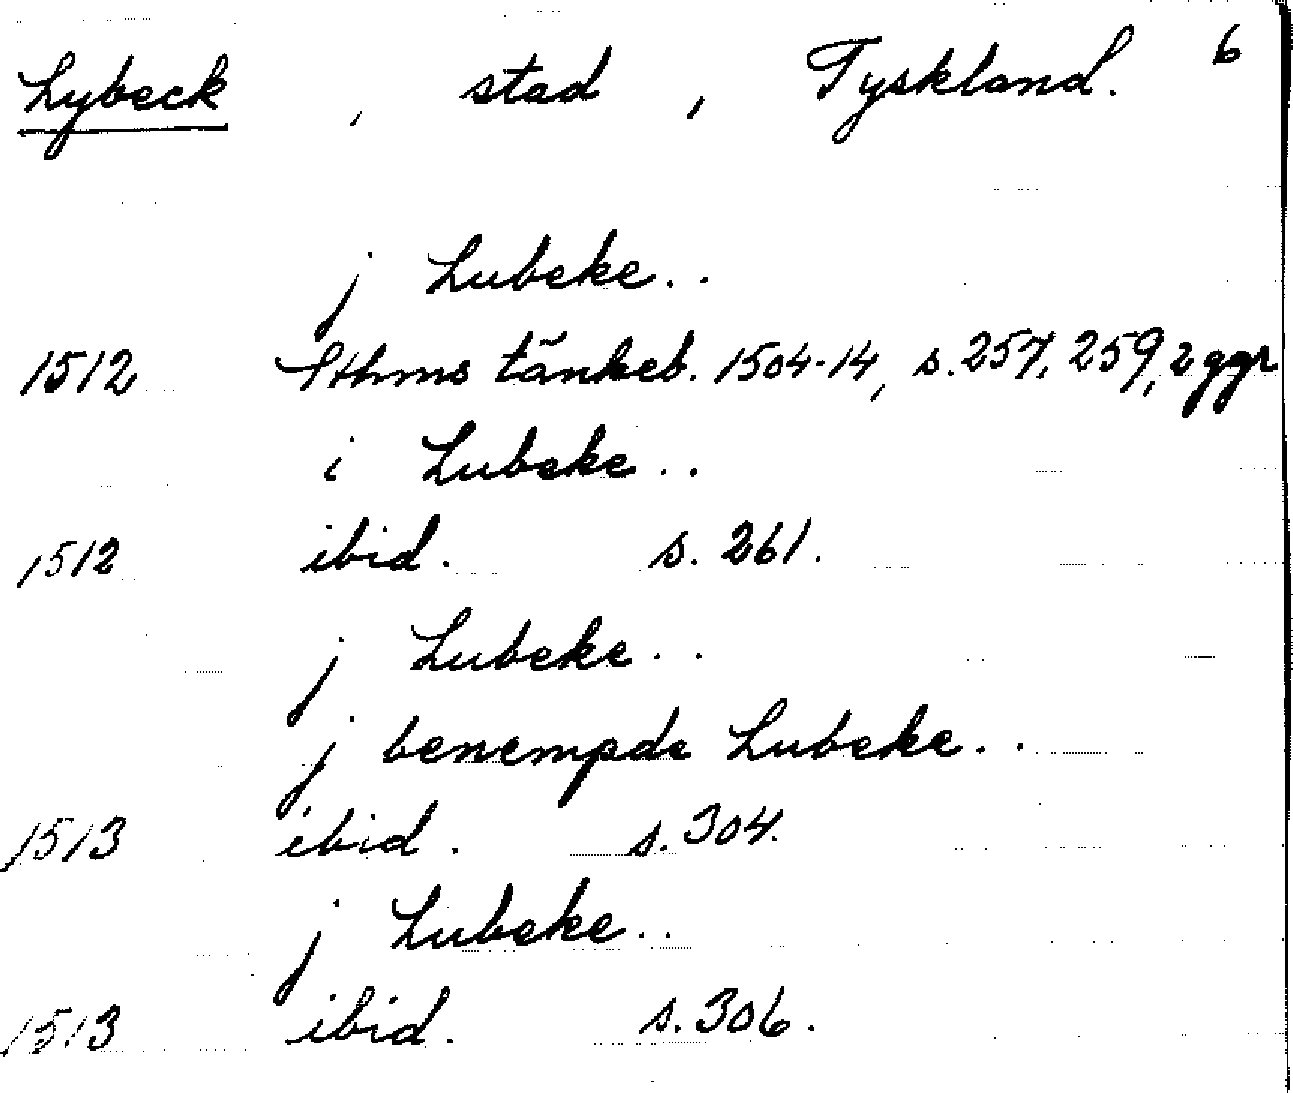 Lybeck , stad , Tyskland. 6
j Lubeke..
1512 Sthms tänkeb. 1504-14, s. 257, 259, 2 ggr
i Lubeke..
1512 ibid. s. 261.
j Lubeke..
j benempde Lubeke..
1513 ibid. s. 304.
j Lubeke..
1513 ibid. s. 306.